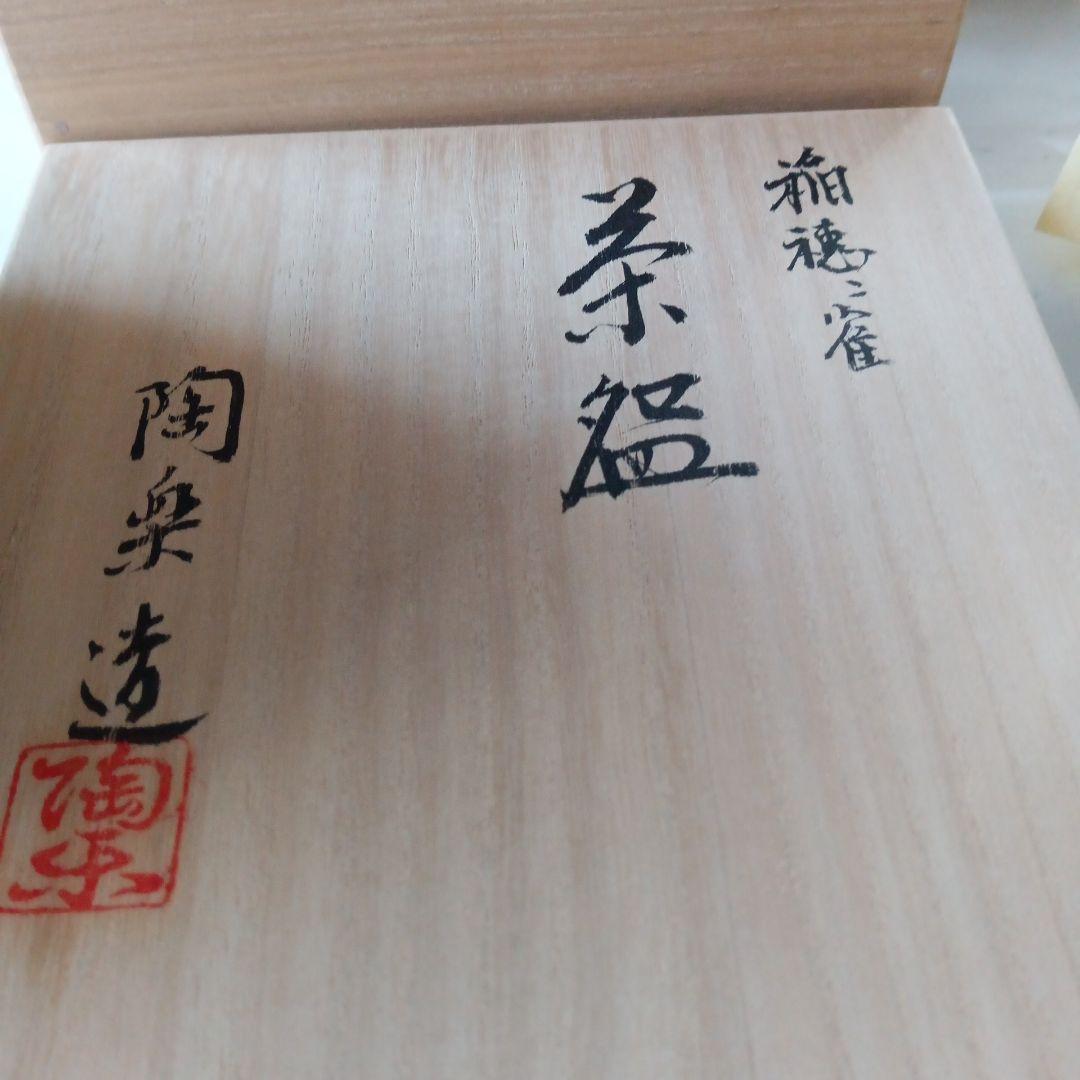 稲穂ニ雀
茶盌
陶楽造
陶楽